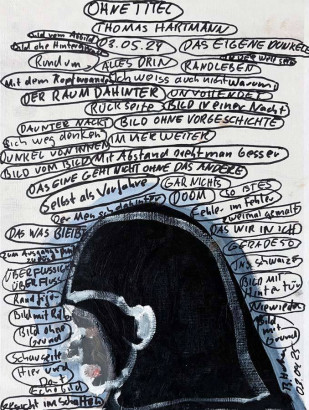 OHNE TITEL
THOMAS HARTMANN
Bild vom Abbild
Bild ohne Hintergrund 03.05.24 DAS EIGENE DUNKELE
Rund um ALLES DRIN RANDLEBEN
Mit dem Kopf Ich weiss auch nicht warum
DER RAUM DAHINTER UNVOLLENDET
RÜCKSEITE BILD in einer Nacht
DARUNTER NACKT BILD OHNE VORGESCHICHTE
Sich weg denken IMMER WEITER
DUNKEL VON INNEN Mit Abstand sieht man besser
BILD VOM BILD
DAS EINE GEHT NICHT OHNE DAS ANDERE
Selbst als Vorfahre GAR NICHTS
Der Mensch dahinter DOOM SO IST ES
Fehler im Fehler
zweimal gemalt
DAS WAS BLEIBT DAS WIR IN ICH
GERADE SO
ÜBERFLÜSSIG
ÜBERFLUSS
das schwarze
BILD MIT
Hintertür
Randfigur
Bild mit Rand
Bild ohne
Grund
Bild
mit
Grund
Schauseite
Hier und
Dort
Echtbild
im Schatten
03.04.24